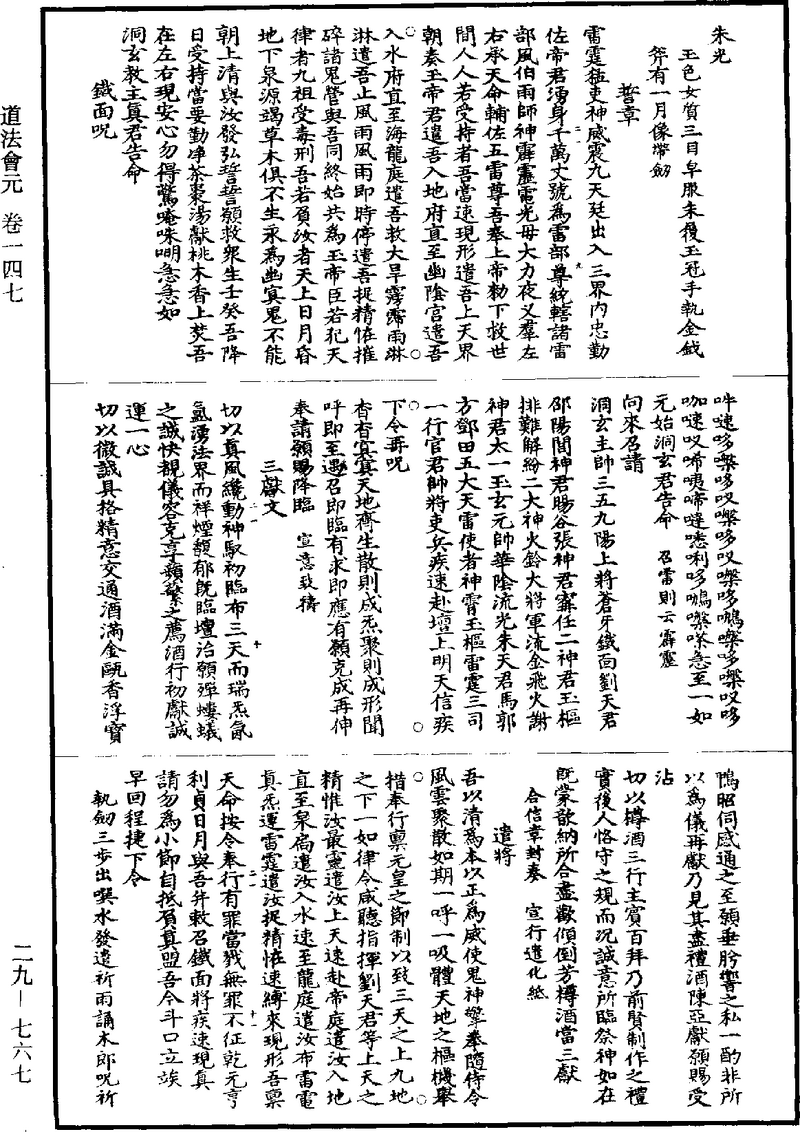 道法會元 卷一四七
二九—七六七
朱光
玉色女質三目皁服朱履玉冠手執金鉞
斧有一月像帶劒
誓章
雷霆猛吏神威震九天廷出入三界內忠勤
佐帝君湧身千萬丈號為雷部尊統轄諸雷
部風伯雨師神霹靂電光母大力夜叉羣左
右承天命輔佐五雷尊吾奉上帝勑下救世
間人人若受持者吾當速現形遣吾上天界
朝奏玉帝君遣吾入地府直至幽陰宮遣吾
入水府直至海龍庭遣吾救大旱霶霈雨淋
淋遣吾止風雨風雨即時停遣吾捉精怪摧
碎諸鬼營與吾同終始共為玉帝臣若犯天
律者九祖受毒刑吾若負汝者天上日月昏
地下泉源竭草木俱不生永為幽冥鬼不能
朝上清與汝發弘誓誓願救眾生壬癸吾降
日受持當要勤净茶棗湯獻桃木香上焚吾
在左右現安心勿得驚唵咮呬急急如
洞玄教主真君告命
鐵面呪
吽㖀哆㘑哆叹㘑哆叹㘑哆鵂㘑哆㘑叹哆
咖㖀叹唏㖿啼𠽾㗭唎哆鵂㘑㗫急至一如
元始洞玄君告命 召雷則云霹靂
向來召請
洞玄主帥三五九陽上將蒼牙鐵面劉天君
邵陽閻神君暘谷張神君竆任二神君玉樞
排難解紛二大神火鈴大將軍流金飛火謝
神君太一玉玄元帥華陰流光朱天君馬郭
方鄧田五大天雷使者神霄玉樞雷霆三司
一行官君帥將吏兵疾速赴壇上明天信疾
下令再呪
杳杳冥冥天地齊生散則成炁聚則成形聞
呼即至遇召即臨有求即應有願克成再伸
奉請願賜降臨 宣意致禱
三獻文
切以真風纔動神馭初臨布三天而瑞炁氤
氳湧法界而祥煙馥郁既臨壇治願殫螻蟻
之誠快覩儀容克享蘋蘩之薦酒行初獻誠
運一心
切以微誠具格精意交通酒滿金甌香浮寶
鴨昭伺感通之至願垂肹響之私一酌非所
以為儀再獻乃見其盡禮酒陳亞獻願賜受
沾
切以罇酒三行主賓百拜乃前賢制作之禮
實後人恪守之規而況誠意所臨祭神如在
既蒙歆納所合盡歡傾倒芳樽酒當三獻
合信章封奏 宣行遣化紙
遣將
吾以清為本以正為威使鬼神擎拳隨侍令
風雲聚散如期一呼一吸體天地之樞機舉
措奉行禀元皇之節制以致三天之上九地
之下一如律令咸聽指揮劉天君等上天之
精惟汝最靈遣汝上天速赴帝庭遣汝入地
直至泉扃遣汝入水速至龍庭遣汝布雷電
真炁運雷霆遣汝捉精怪速縛來現形吾禀
天命按令奉行有罪當戮無罪不征乾元亨
利貞日月與吾并敕召鐵面將疾速現真
請勿為小節自抵負真盟吾今斗口立竢
早回程捷下令
執劒三步出噀水發遣祈雨誦木郎呪祈